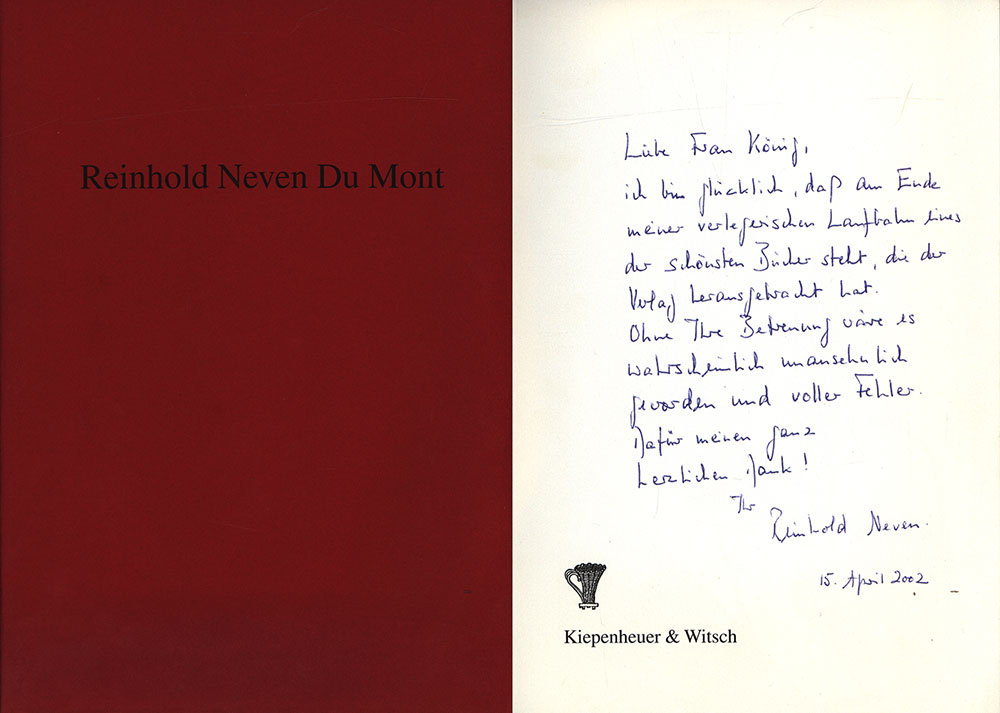 Reinhold Neven Du Mont
Liebe Frau König,
ich bin glücklich, daß am Ende
meiner verlegerischen Laufbahn eines
der schönsten Bücher steht, die der
Verlag herausgebracht hat.
Ohne Ihre Betreuung wäre es
wahrscheinlich unansehnlich
geworden und voller Fehler.
Dafür meinen ganz
herzlichen Dank!
Ihr
Reinhold Neven.
15. April 2002
Kiepenheuer & Witsch